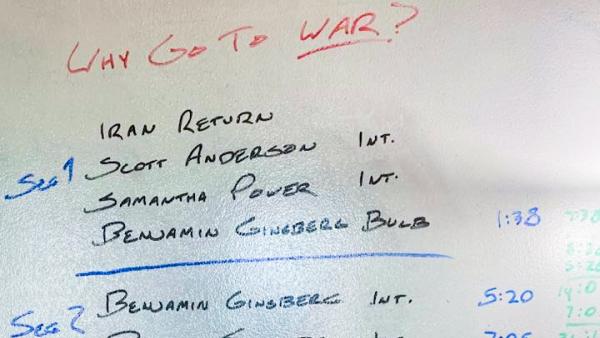 WHY GO TO WAR?
IRAN RETURN
Seg 1 SCOTT ANDERSON INT.
SAMANTHA POWER INT.
BENJAMIN GINSBERG BULB 1:38
Seg 2 BENJAMIN GINSIBERG INT. 5:20